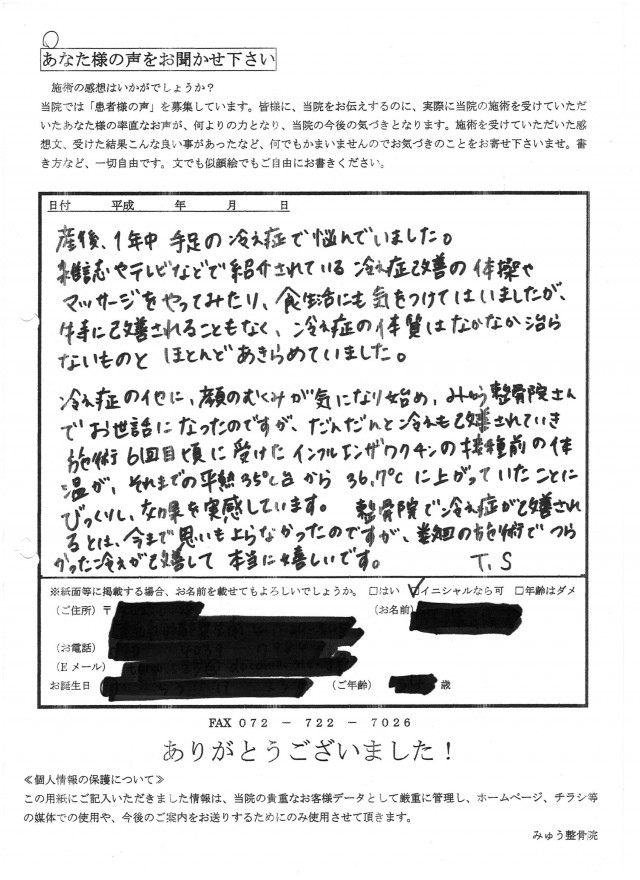 あなた様の声をお聞かせ下さい
施術の感想はいかがでしょうか？
当院では「患者様の声」を募集しています。皆様に、当院をお伝えするのに、実際に当院の施術を受けていただ
いたあなた様の率直なお声が、何よりの力となり、当院の今後の気づきとなります。施術を受けていただいた感
想文、受けた結果こんな良い事があったなど、何でもかまいませんのでお気づきのことをお寄せ下さいませ。書
き方など、一切自由です。文でも似顔絵でもご自由にお書きください。
日付　平成　年　月　日
産後、1年中 手足の冷え症で悩んでいました。
雑誌やテレビなどで紹介されている 冷え症改善の体操や
マッサージをやってみたり、食生活にも気をつけてはいましたが、
特に改善されることもなく、冷え症の体質はなかなか治ら
ないものと ほとんどあきらめていました。
冷え症の他に、顔のむくみが気になり始め、みゅう整骨院さん
でお世話になったのですが、だんだんと冷えも改善されていき
施術6回目頃に受けたインフルエンザワクチンの接種前の体
温が、それまでの平熱35℃台から 36.7℃に上がっていたことに
びっくりし、効果を実感しています。 整骨院で冷え症が改善され
るとは、今まで思いも よらなかったのですが、毎回の施術でつら
かった冷えが改善して 本当に嬉しいです。 T.S
※紙面等に掲載する場合、お名前を載せてもよろしいでしょうか。 □はい ☑イニシャルなら可 □年齢はダメ
（ご住所）〒 （お名前）
（お電話）
（Eメール）
お誕生日 （ご年齢） 歳
FAX 072 － 722 － 7026
ありがとうございました！
≪個人情報の保護について≫
この用紙にご記入いただきました情報は、当院の貴重なお客様データとして厳重に管理し、ホームページ、チラシ等
の媒体での使用や、今後のご案内をお送りするためにのみ使用させて頂きます。
みゅう整骨院